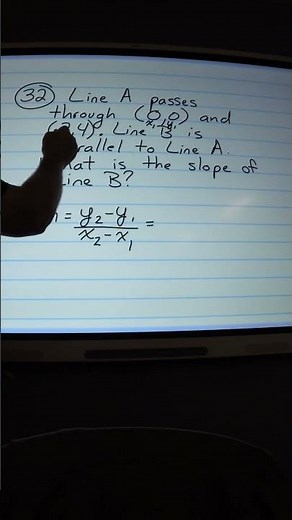 32 Line A passes
through (0,0) and
x₁ y₁
2,4). Line B is
parallel to Line A.
What is the slope of
Line B?
y₂-y₁
= ――― =
x₂-x₁